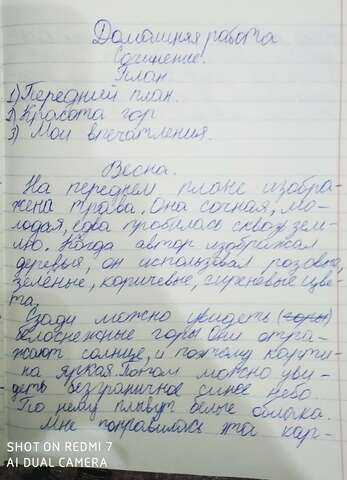 Домашняя работа
Сочинение.
План
1) Передний план.
2) Красота гор
3) Мои впечатления.
Весна.
На переднем плане изобра-
жена трава. Она сочная, мо-
лодая, едва пробилась сквозь зем-
лю. Когда автор изображал
деревья, он использовал розовые,
зелёные, коричневые, сиреневые цве-
та.
Сзади можно увидеть (горы)
белоснежные горы. Они отра-
жают солнце, и поэтому карти-
на яркая. Потом можно уви-
деть безграничное синее небо.
По нему плывут белые облака.
Мне понравилась эта кар-
SHOT ON REDMI 7
AI DUAL CAMERA